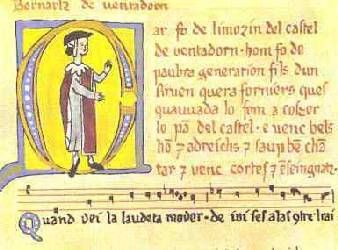 Bernartz de ventadorn
ar fo de limozin del castel
de ventadorn · hom fo de
paubra generation fils dun
siruen quera forniers ques
quauzaua lo forn a cozer
lo pã del castel · e venc bels
hõ ⁊ adreichs ⁊ saup bẽ chã
tar ⁊ venc cortes ⁊ enseingnatz ·
Quand vei la laudeta mover · de ioi ses alas